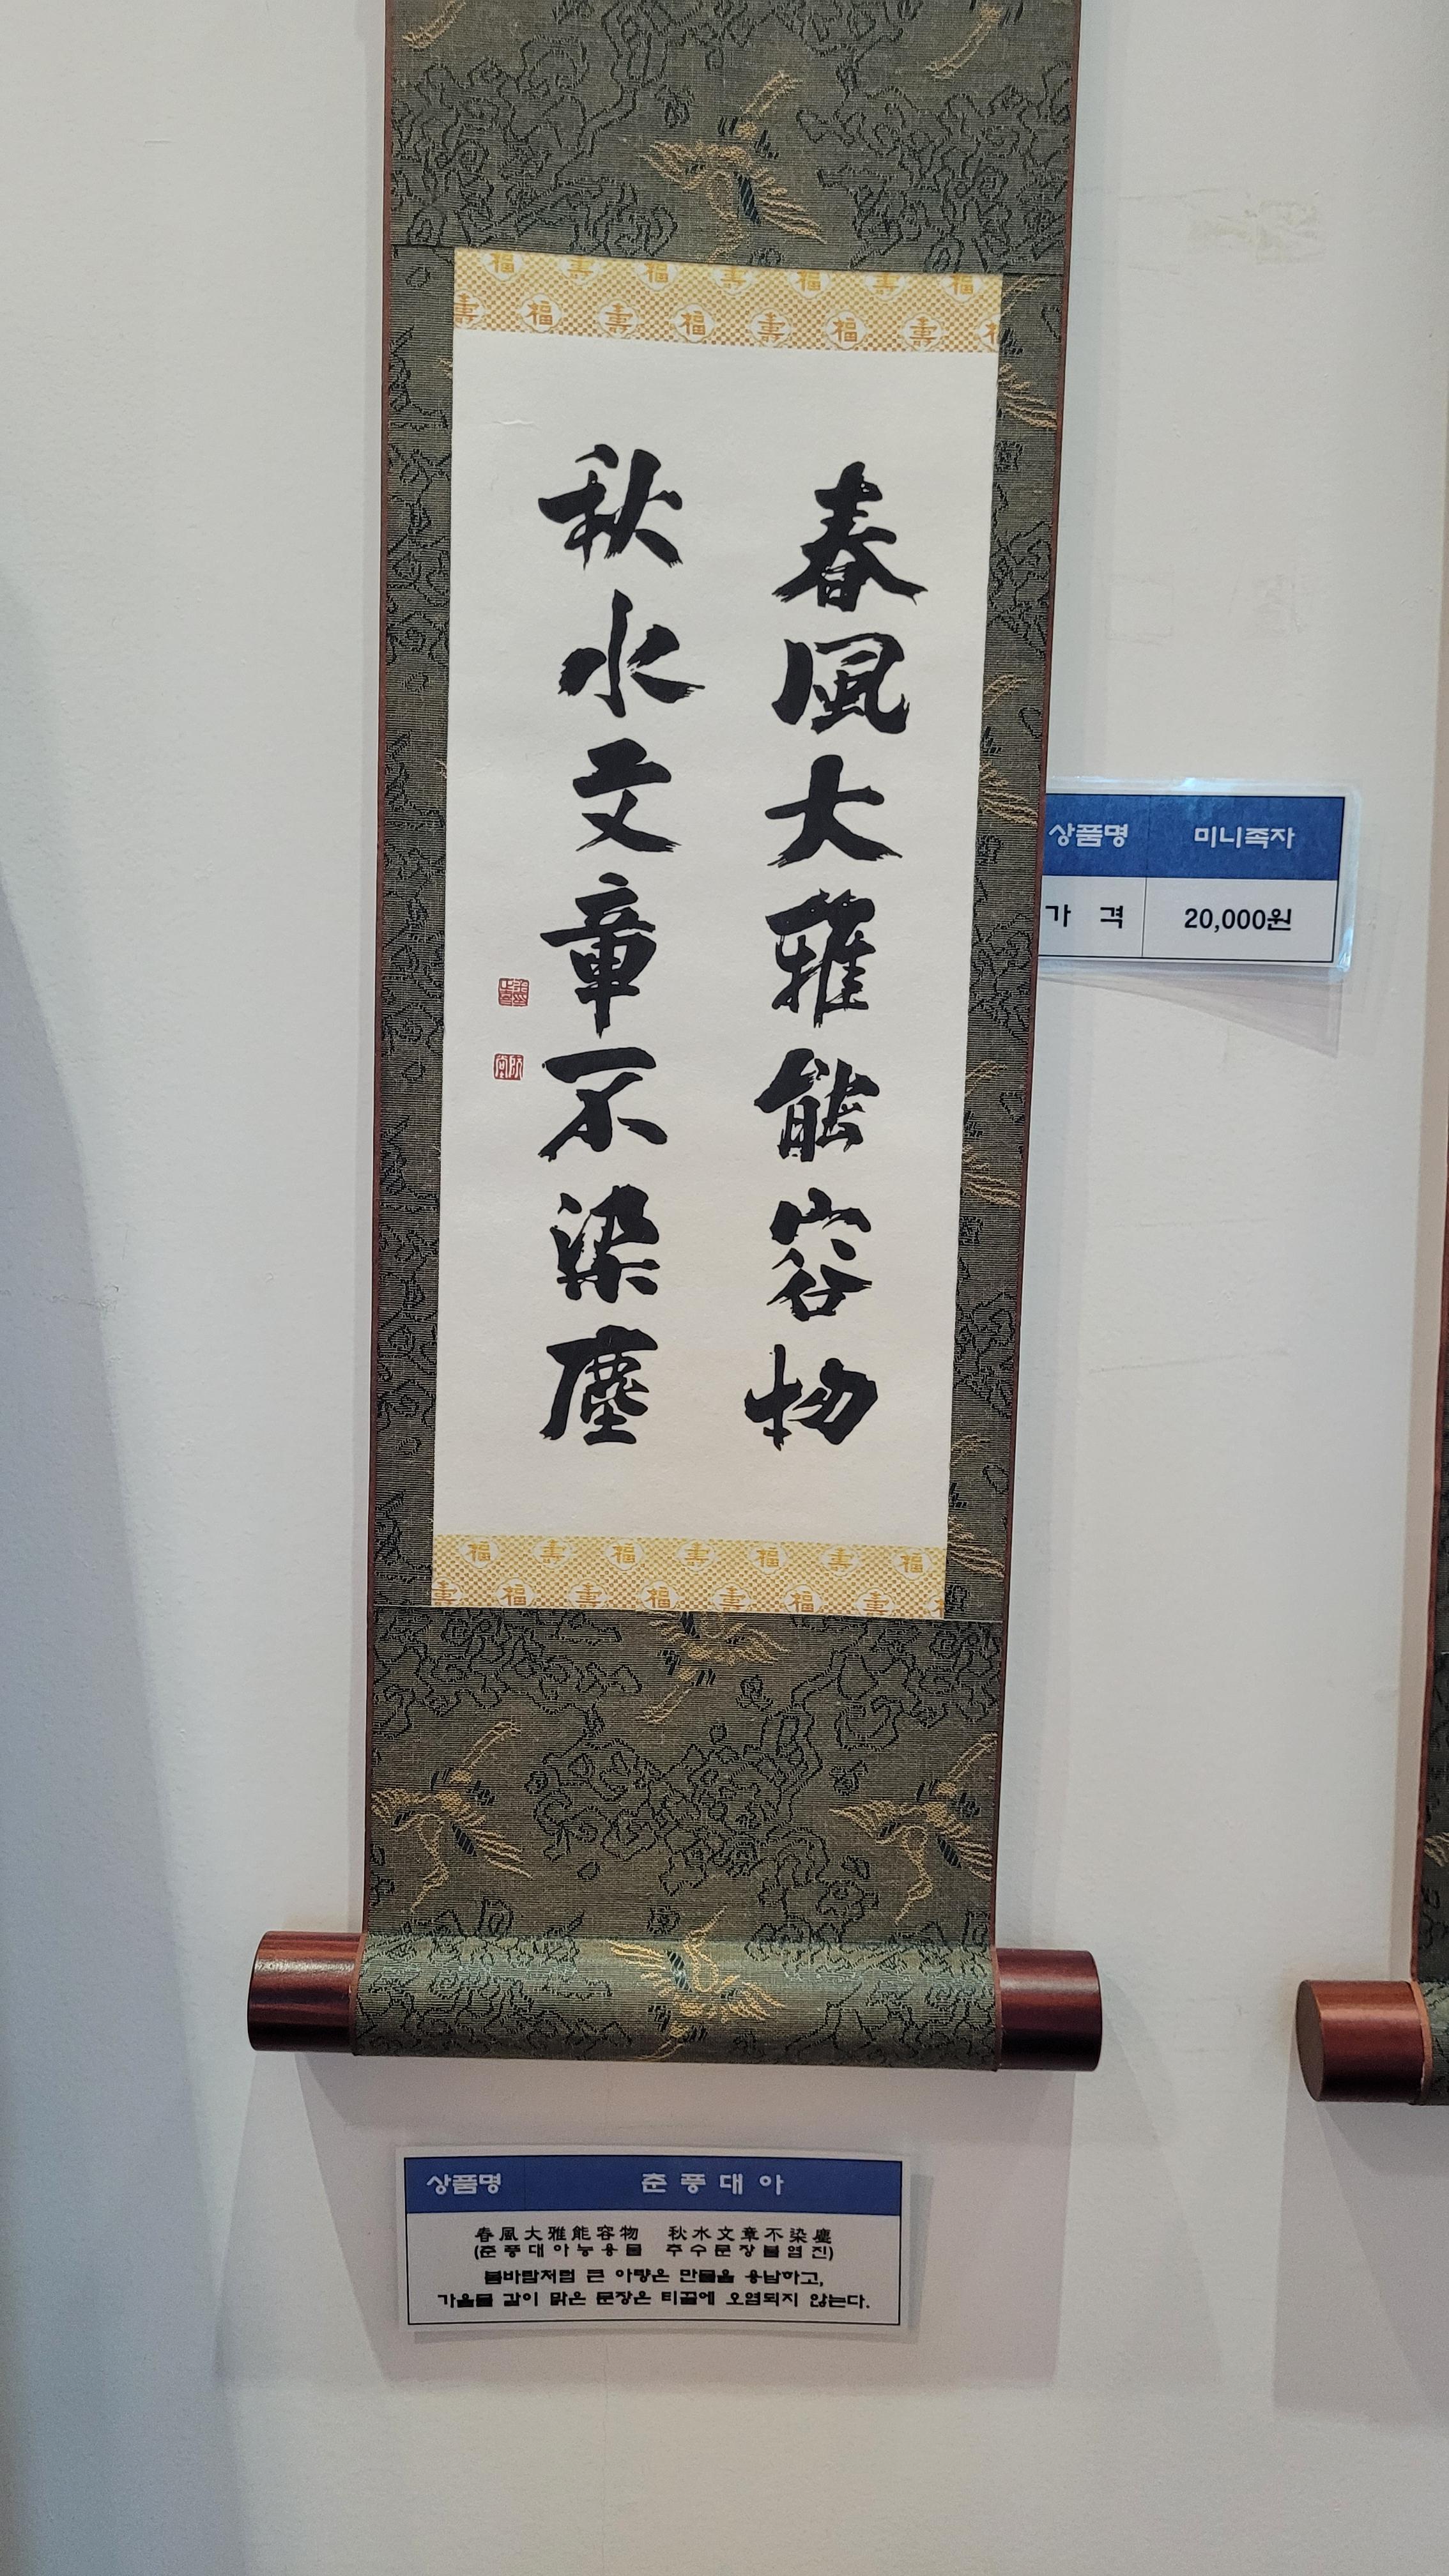 春風大雅能容物
秋水文章不染塵
상품명 미니족자
가 격 20,000원
상품명 춘풍대아
春風大雅能容物 秋水文章不染塵
(춘풍대아능용물 추수문장불염진)
봄바람처럼 큰 아량은 만물을 용납하고,
가을물 같이 맑은 문장은 티끌에 오염되지 않는다.
福 壽 福 壽 福 壽 福
壽 福 壽 福 壽 福 壽
福 壽 福 壽 福 壽 福
壽 福 壽 福 壽 福 壽